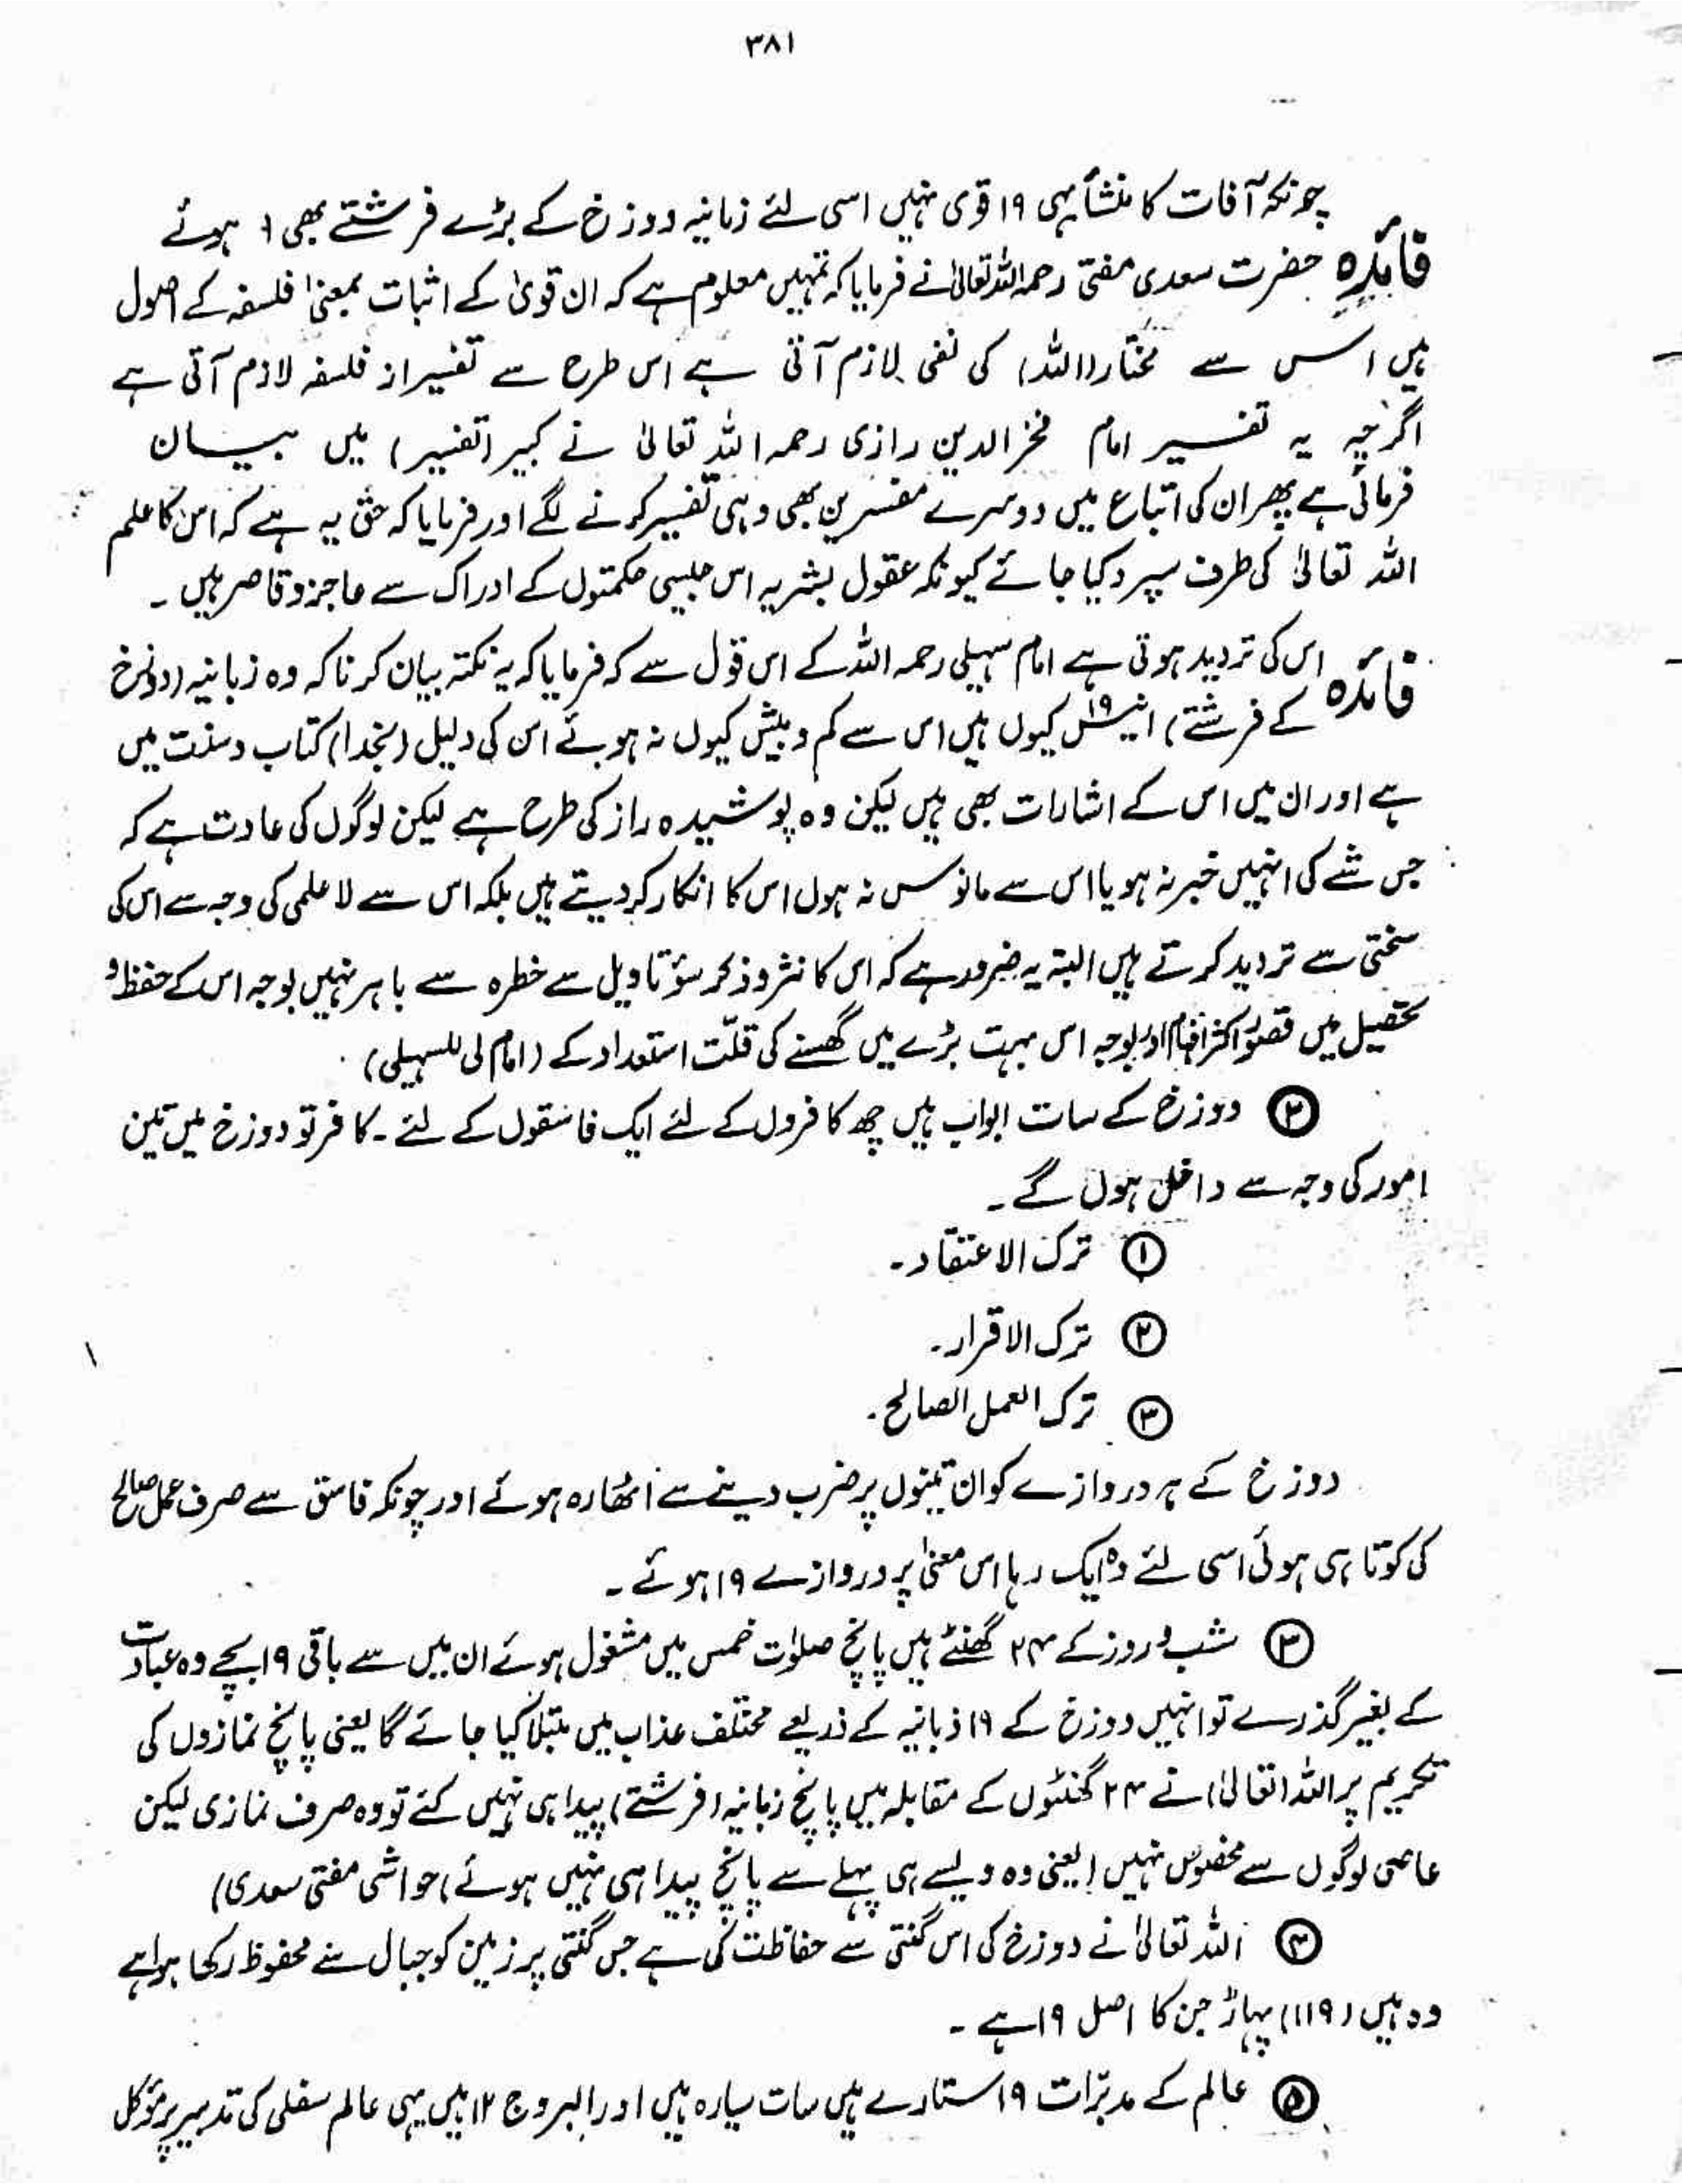 ۳۸۱
چونکہ آفات کا منشأ یہی ۱۹ قوی ہیں اسی لئے زبانیہ دوزخ کے بڑے فرشتے بھی ہوئے
فائدہ حضرت سعدی مفتی رحمہ اللہ تعالیٰ نے فرمایا کہ تمہیں معلوم ہے کہ ان قویٰ کے اثبات بمعنیٰ فلسفہ کے اصول
ہیں اس سے مختار (اللہ) کی نفی لازم آتی ہے اس طرح سے تفسیر از فلسفہ لازم آتی ہے
اگرچہ یہ تفسیر امام فخر الدین رازی رحمہ اللہ تعالیٰ نے کبیر (تفسیر) میں بیان
فرمائی ہے پھر ان کی اتباع میں دوسرے مفسرین بھی وہی تفسیر کرنے لگے اور فرمایا کہ حق یہ ہے کہ اس کا علم
اللہ تعالیٰ کی طرف سپرد کیا جائے کیونکہ عقول بشریہ اس جیسی حکمتوں کے ادراک سے عاجز و قاصر ہیں ۔
فائدہ اس کی تردید ہوتی ہے امام سہیلی رحمہ اللہ کے اس قول سے کہ فرمایا کہ یہ نکتہ بیان کرنا کہ وہ زبانیہ (دوزخ
کے فرشتے) انیس ۱۹ کیوں ہیں اس سے کم و بیش کیوں نہ ہوئے اس کی دلیل (بخدا) کتاب و سنت میں
ہے اور ان میں اس کے اشارات بھی ہیں لیکن وہ پوشیدہ راز کی طرح ہے لیکن لوگوں کی عادت ہے کہ
جس شے کی انہیں خبر نہ ہو یا اس سے مانوس نہ ہوں اس کا انکار کر دیتے ہیں بلکہ اس سے لا علمی کی وجہ سے اس کی
سختی سے تردید کرتے ہیں البتہ یہ ضرور ہے کہ اس کا نثر و ذکر سؤ تاویل سے خطرہ سے باہر نہیں بوجہ اس کے حفظ و
تحصیل میں قصور اکثر افہام اور بوجہ اس بہت بڑے میں گھسنے کی قلّت استعداد کے (امام لی للسہیلی) ۔
۲ دوزخ کے سات ابواب ہیں چھ کافروں کے لئے ایک فاسقوں کے لئے ۔ کافر تو دوزخ میں تین
امور کی وجہ سے داخل ہوں گے ۔
۱ ترک الاعتقاد ۔
۲ ترک الاقرار ۔
۳ ترک العمل الصالح ۔
دوزخ کے ہر دروازے کو ان تینوں پر ضرب دینے سے اٹھارہ ہوئے اور چونکہ فاسق سے صرف عمل صالح
کی کوتاہی ہوئی اسی لئے وہ ایک رہا اس معنیٰ پر دروازے ۱۹ ہوئے ۔
۳ شب و روز کے ۲۴ گھنٹے ہیں پانچ صلوٰت خمس میں مشغول ہوئے ان میں سے باقی ۱۹ بچے وہ عبادت
کے بغیر گذرے تو انہیں دوزخ کے ۱۹ زبانیہ کے ذریعے مختلف عذاب میں مبتلا کیا جائے گا یعنی پانچ نمازوں کی
تکریم پر اللہ (تعالیٰ) نے ۲۴ گھنٹوں کے مقابلہ میں پانچ زبانیہ (فرشتے) پیدا ہی نہیں کئے تو وہ صرف نمازی لیکن
عاصی لوگوں سے مخصوص نہیں (یعنی وہ ویسے ہی پہلے سے پانچ پیدا ہی نہیں ہوئے) (حواشی مفتی سعدی)
۴ اللہ تعالیٰ نے دوزخ کی اس گنتی سے حفاظت کی ہے جس گنتی پر زمین کو جبال سے محفوظ رکھا ہوا ہے
وہ ہیں (۱۱۹) پہاڑ جن کا اصل ۱۹ ہے ۔
۵ عالم کے مدبّرات ۱۹ ستارے ہیں سات سیارہ ہیں اور البروج ۱۲ ہیں یہی عالم سفلی کی تدبیر پر مؤکل